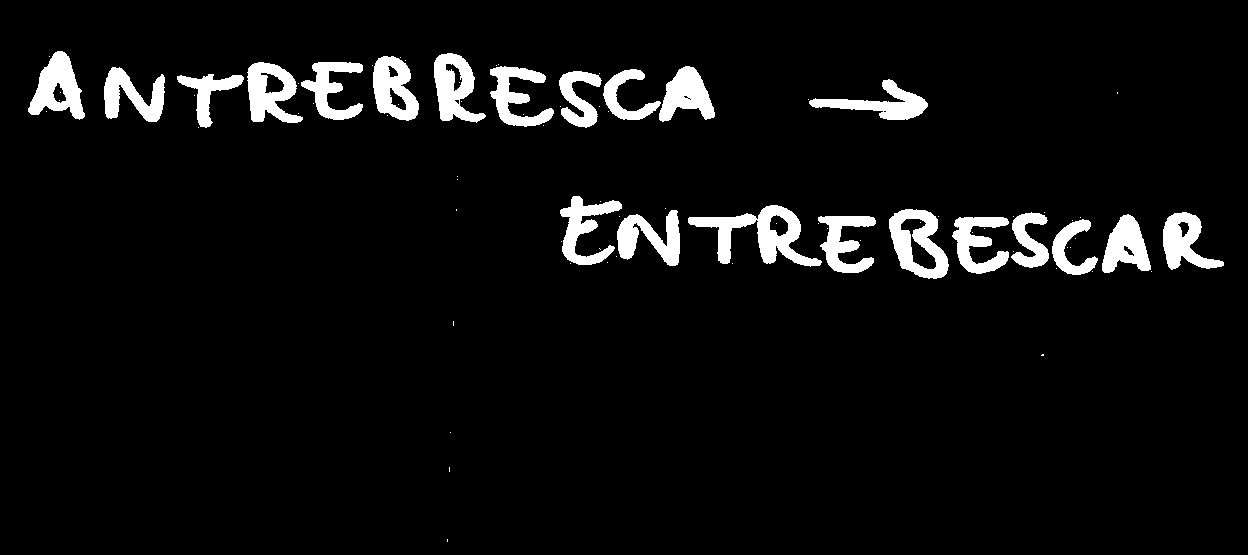 ANTREBRESCA →
ENTREBESCAR